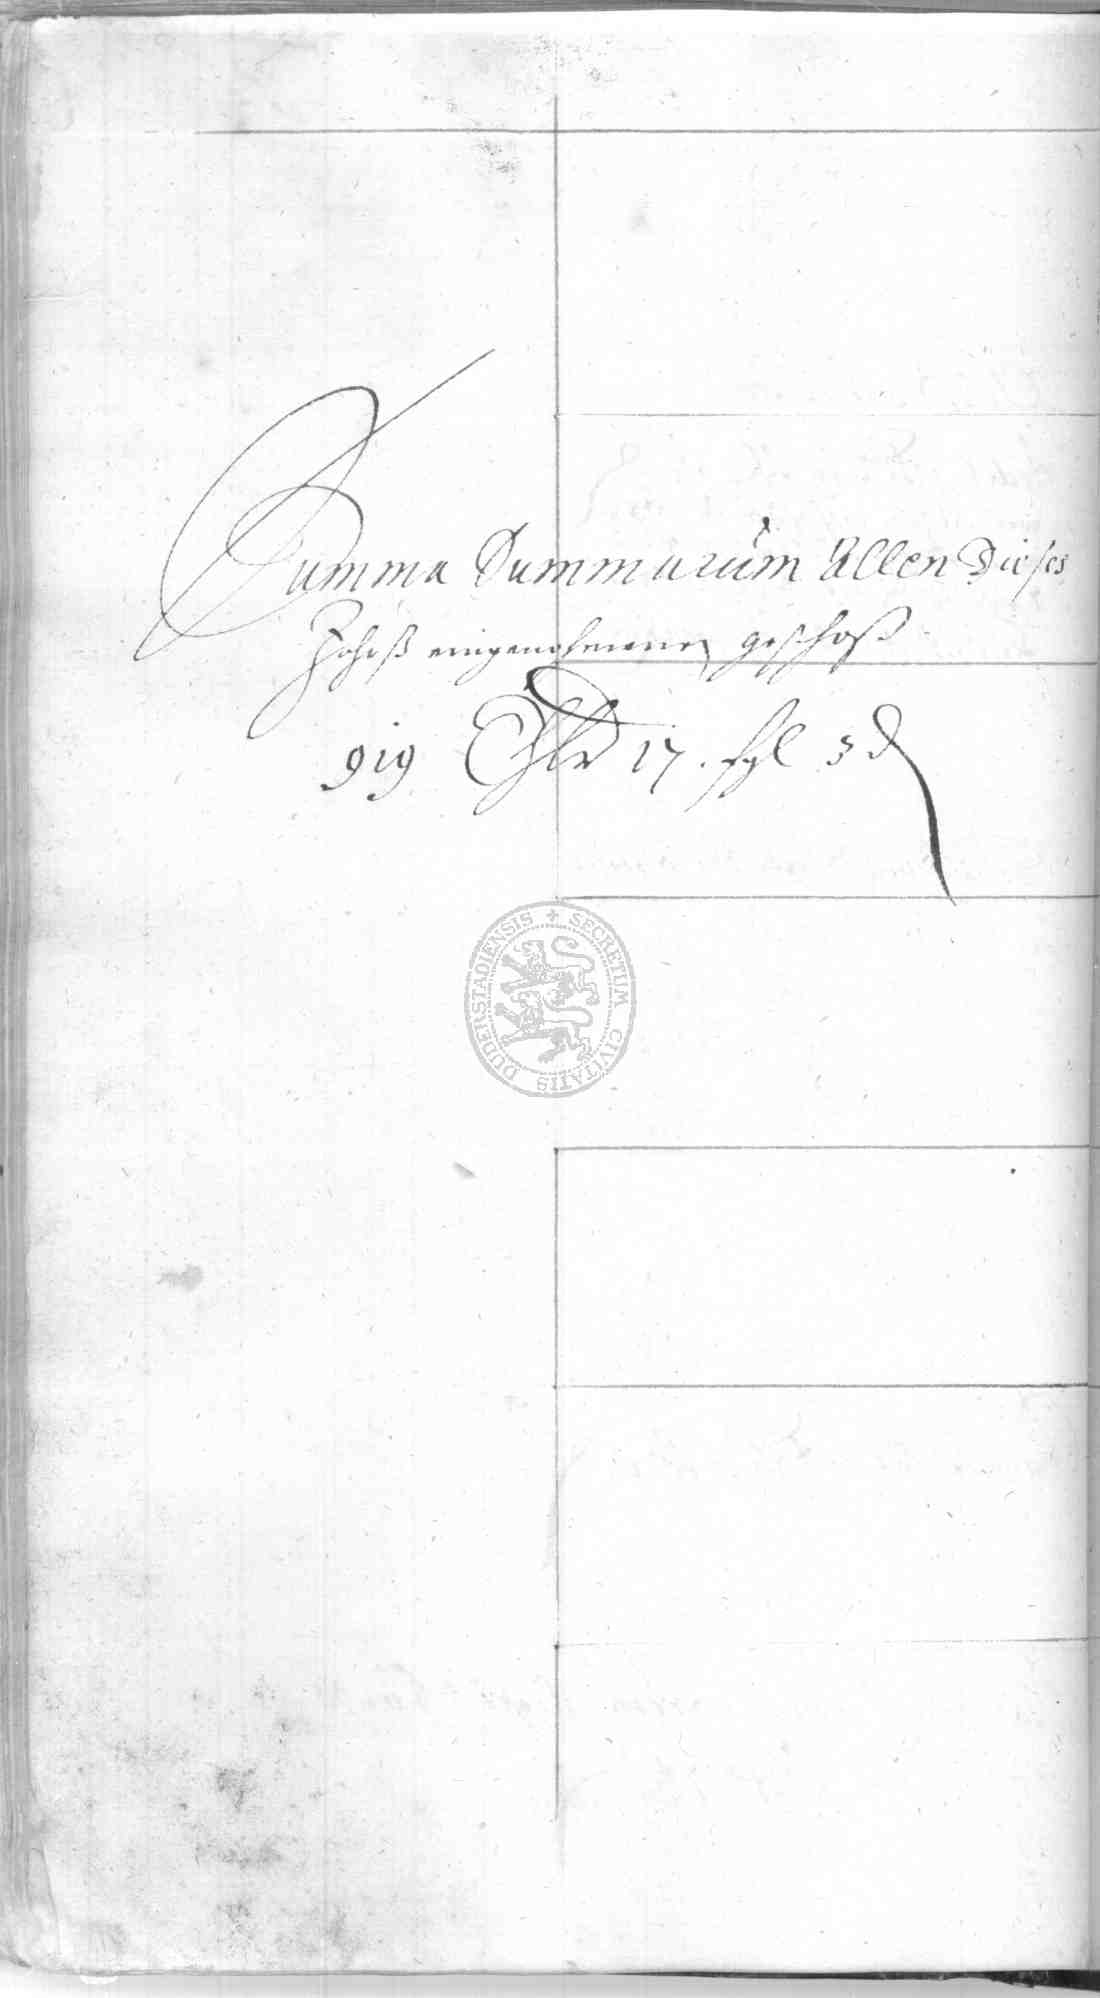 Summa Summarum Allen Dieses
Jahrß eingenohmenen geschoß
919 Thlr 17. ßgl 3 d
SECRETUM CIVITATIS DUDERSTADIENSIS